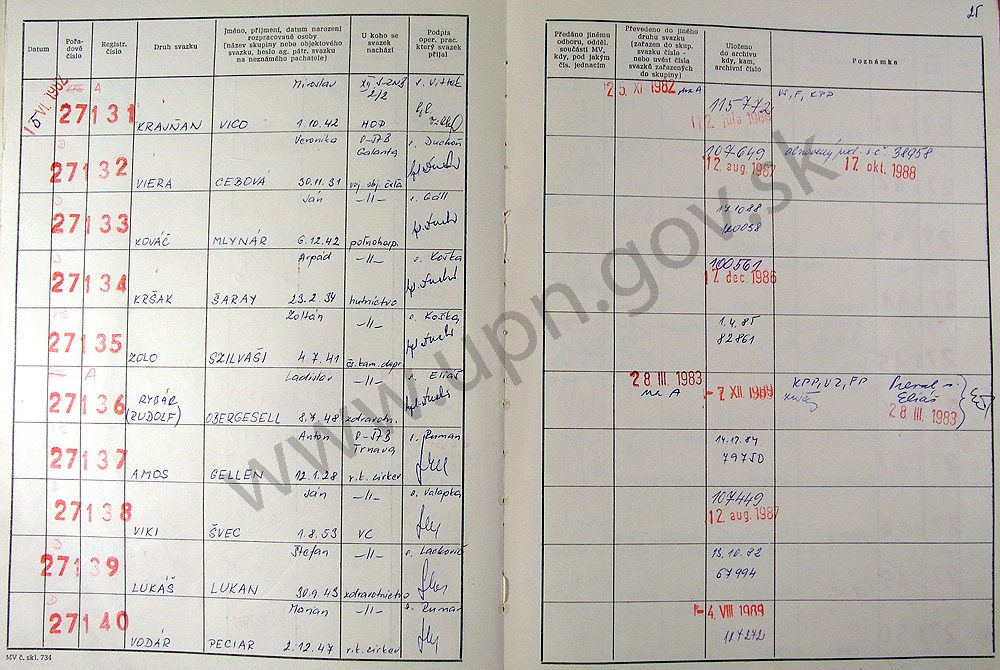 25
Datum
Pořadové číslo
Registr. číslo
Druh svazku
Jméno, příjmení, datum narození rozpracované osoby (název skupiny nebo objektového svazku, heslo ag. pátr. svazku na neznámého pachatele)
U koho se svazek nachází
Podpis oper. prac. který svazek přijal
Předáno jinému odboru, odděl. součásti MV, kdy, pod jakým čís. jednacím
Převedeno do jiného druhu svazku (zařazen do skup. svazku číslo - nebo uvést čísla svazků zařazených do skupiny)
Uloženo do archivu kdy, kam, archivní číslo
Poznámka
A
Miroslav
27131 KRAJŇAN VICO 1.10.42
25. XI 1982 na A
115772
Veronika
P-ŠTB Galanta
s. Duchoň
27132 VIERA CEBOVÁ 30.11.31
107649
12 aug. 1987
38958
17 okt. 1988
D
Ján
-11-
s. Gáll
27133 KOVÁČ MLYNÁR 6.12.42
14.10.88
D
Arpád
-11-
s. Koška
27134 KRŠAK ŠARAY 23.2.34 hutníctvo
100561
17 dec. 1986
Zoltán
-11-
s. Koška
27135 ZOLO SZILVAŠI 4.7.41
1.4.85
82861
A
Ladislav
-11-
s. Eliáš
27136 RYBÁR (RUDOLF) OBERGESELL 8.7.48 zdravotn.
28 III. 1983
na A
-7. XII. 1989
KPP, VZ, FP
Eliáš
28 III. 1983
D
Anton
P-ŠTB Trnava
s. Ruman
27137 AMOS GELLEN 12.1.28 r.k. cirkev
14.12.84
79750
Ján
-11-
s. Valapka
27138 VIKI ŠVEC 1.8.53 VC
107449
12 aug. 1987
D
Štefan
-11-
s. Lackovič
27139 LUKÁŠ LUKAN 30.9.43 zdravotníctvo
13.10.82
67994
D
Marian
-11-
s. Ruman
27140 VODÁR PECIAR 2.12.47 r.k. cirkev
-4. VIII 1989
MV č. skl. 734
www.upn.gov.sk